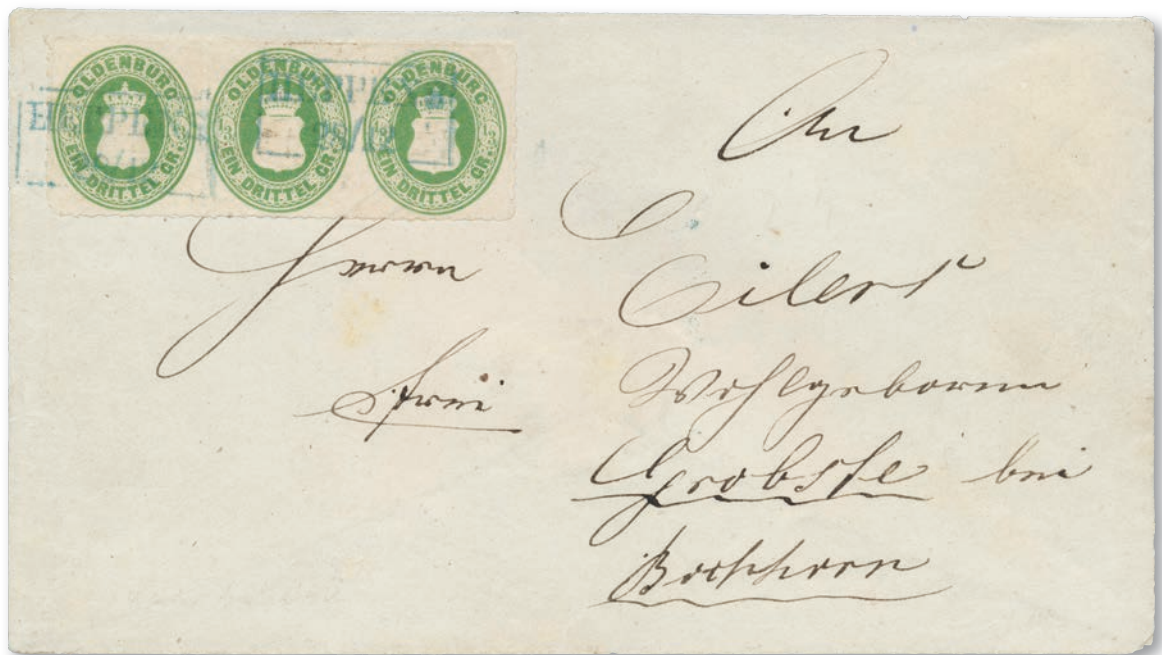 OLDENBURG
EIN DRITTEL GR.
OLDENBURG
EIN DRITTEL GR.
OLDENBURG
EIN DRITTEL GR.
An
Herrn
Eilers
frei
Wohlgeboren
bei
Bockhorn